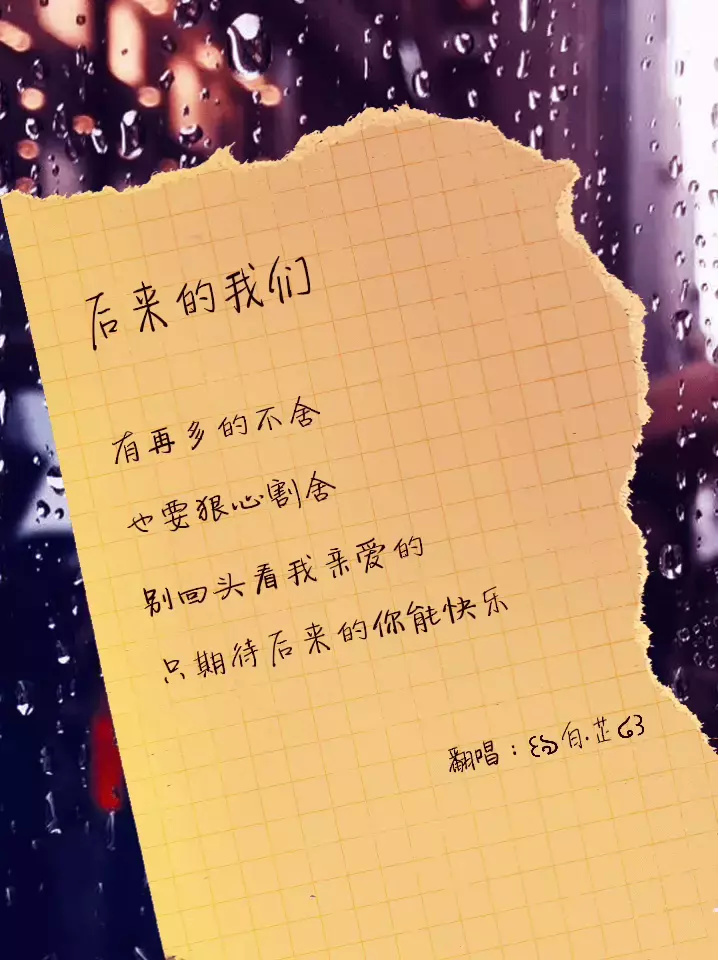 后来的我们
有再多的不舍
也要狠心割舍
别回头看我亲爱的
只期待后来的你能快乐
翻唱：꧁白.芷꧂